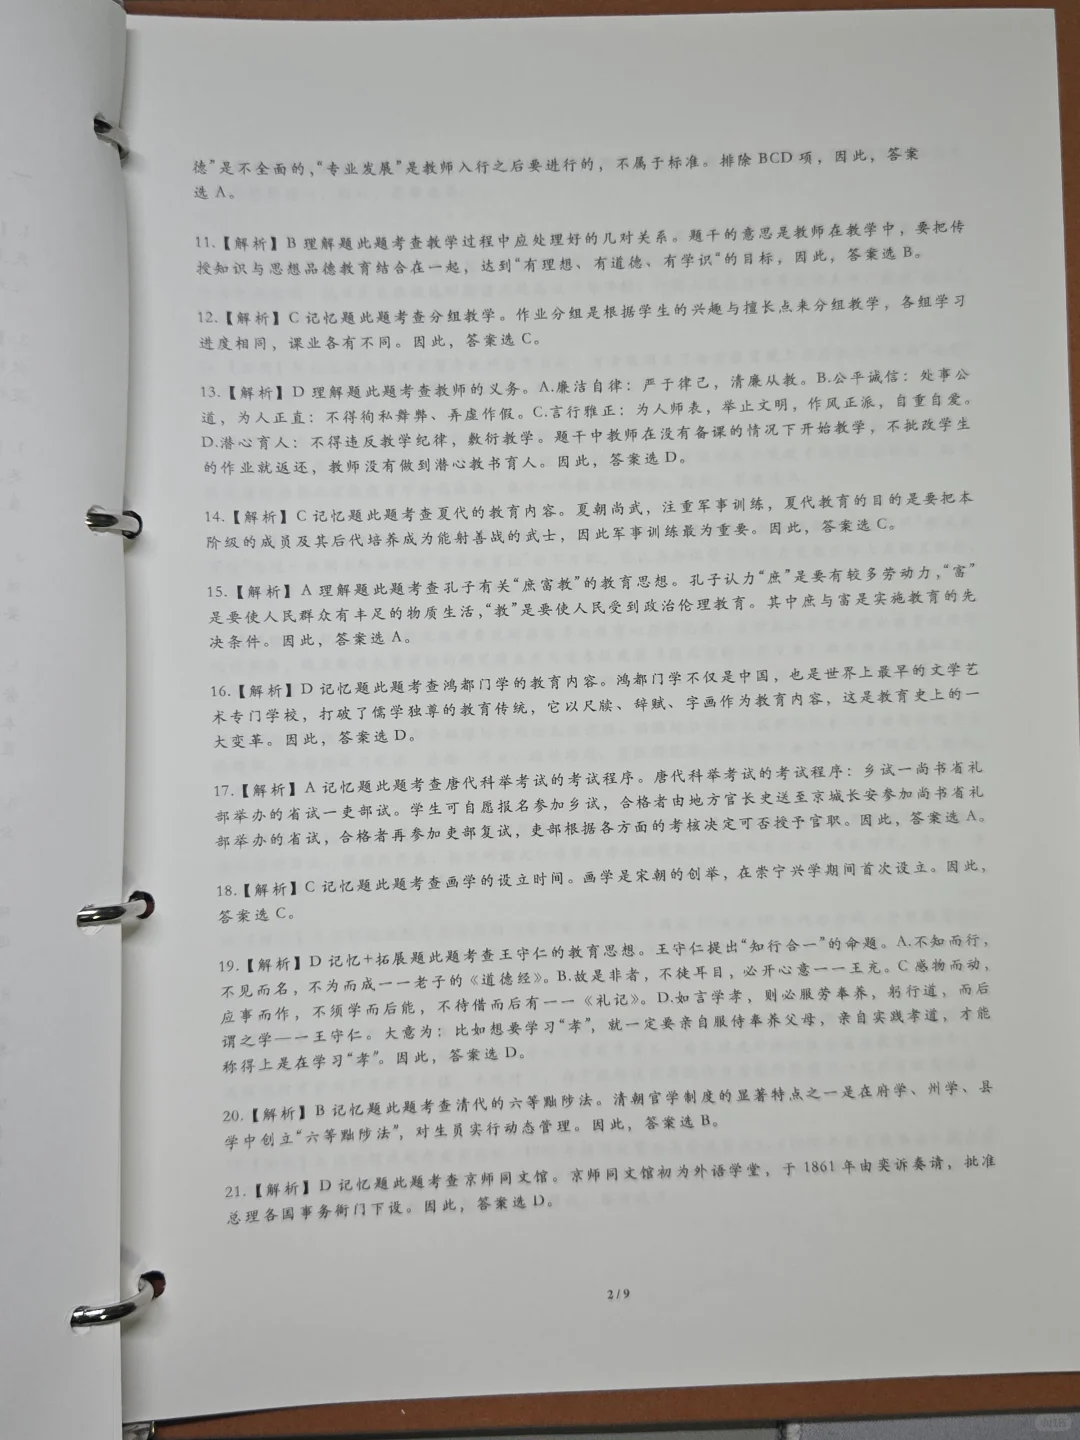 德”是不全面的，“专业发展”是教师入行之后要进行的，不属于标准。排除 BCD 项，因此，答案
选 A。
11.【解析】B 理解题此题考查教学过程中应处理好的几对关系。题干的意思是教师在教学中，要把传
授知识与思想品德教育结合在一起，达到“有理想、有道德、有学识“的目标，因此，答案选 B。
12.【解析】C 记忆题此题考查分组教学。作业分组是根据学生的兴趣与擅长点来分组教学，各组学习
进度相同，课业各有不同。因此，答案选 C。
13.【解析】D 理解题此题考查教师的义务。A.廉洁自律：严于律己，清廉从教。B.公平诚信：处事公
道，为人正直：不得徇私舞弊、弄虚作假。C.言行雅正：为人师表，举止文明，作风正派，自重自爱。
D.潜心育人：不得违反教学纪律，敷衍教学。题干中教师在没有备课的情况下开始教学，不批改学生
的作业就返还，教师没有做到潜心教书育人。因此，答案选 D。
14.【解析】C 记忆题此题考查夏代的教育内容。夏朝尚武，注重军事训练，夏代教育的目的是要把本
阶级的成员及其后代培养成为能射善战的武士，因此军事训练最为重要。因此，答案选 C。
15.【解析】A 理解题此题考查孔子有关“庶富教”的教育思想。孔子认力“庶”是要有较多劳动力，“富”
是要使人民群众有丰足的物质生活，“教”是要使人民受到政治伦理教育。其中庶与富是实施教育的先
决条件。因此，答案选 A。
16.【解析】D 记忆题此题考查鸿都门学的教育内容。鸿都门学不仅是中国，也是世界上最早的文学艺
术专门学校，打破了儒学独尊的教育传统，它以尺牍、辞赋、字画作为教育内容，这是教育史上的一
大变革。因此，答案选 D。
17.【解析】A 记忆题此题考查唐代科举考试的考试程序。唐代科举考试的考试程序：乡试一尚书省礼
部举办的省试一吏部试。学生可自愿报名参加乡试，合格者由地方官长史送至京城长安参加尚书省礼
部举办的省试，合格者再参加吏部复试，吏部根据各方面的考核决定可否授予官职。因此，答案选 A。
18.【解析】C 记忆题此题考查画学的设立时间。画学是宋朝的创举，在崇宁兴学期间首次设立。因此，
答案选 C。
19.【解析】D 记忆+拓展题此题考查王守仁的教育思想。王守仁提出“知行合一”的命题。A.不知而行，
不见而名，不为而成一一老子的《道德经》。B.故是非者，不徒耳目，必开心意一一王充。C 感物而动，
应事而作，不须学而后能，不待借而后有一一《礼记》。D.如言学孝，则必服劳奉养，躬行道，而后
谓之学—一王守仁。大意为：比如想要学习“孝”，就一定要亲自服侍奉养父母，亲自实践孝道，才能
称得上是在学习“孝”。因此，答案选 D。
20.【解析】B 记忆题此题考查清代的六等黜陟法。清朝官学制度的显著特点之一是在府学、州学、县
学中创立“六等黜陟法”，对生员实行动态管理。因此，答案选 B。
21.【解析】D 记忆题此题考查京师同文馆。京师同文馆初为外语学堂，于 1861 年由奕䜣奏请，批准
总理各国事务衙门下设。因此，答案选 D。
2 / 9